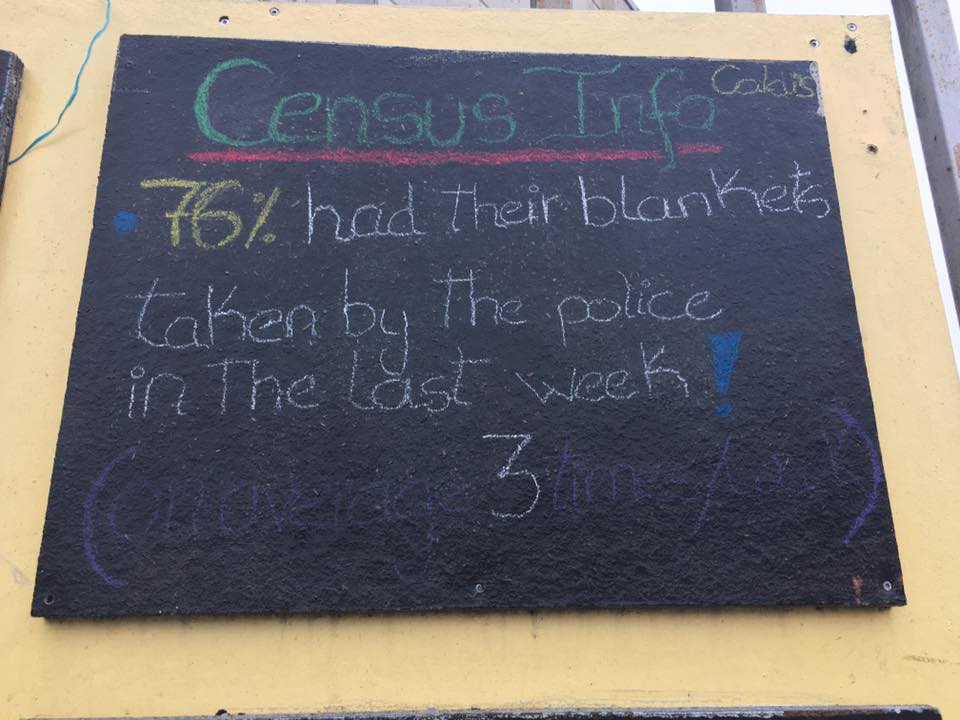 Census Info Cakus
• 76% had their blankets
taken by the police
in the last week!
(on average 3 times/week)